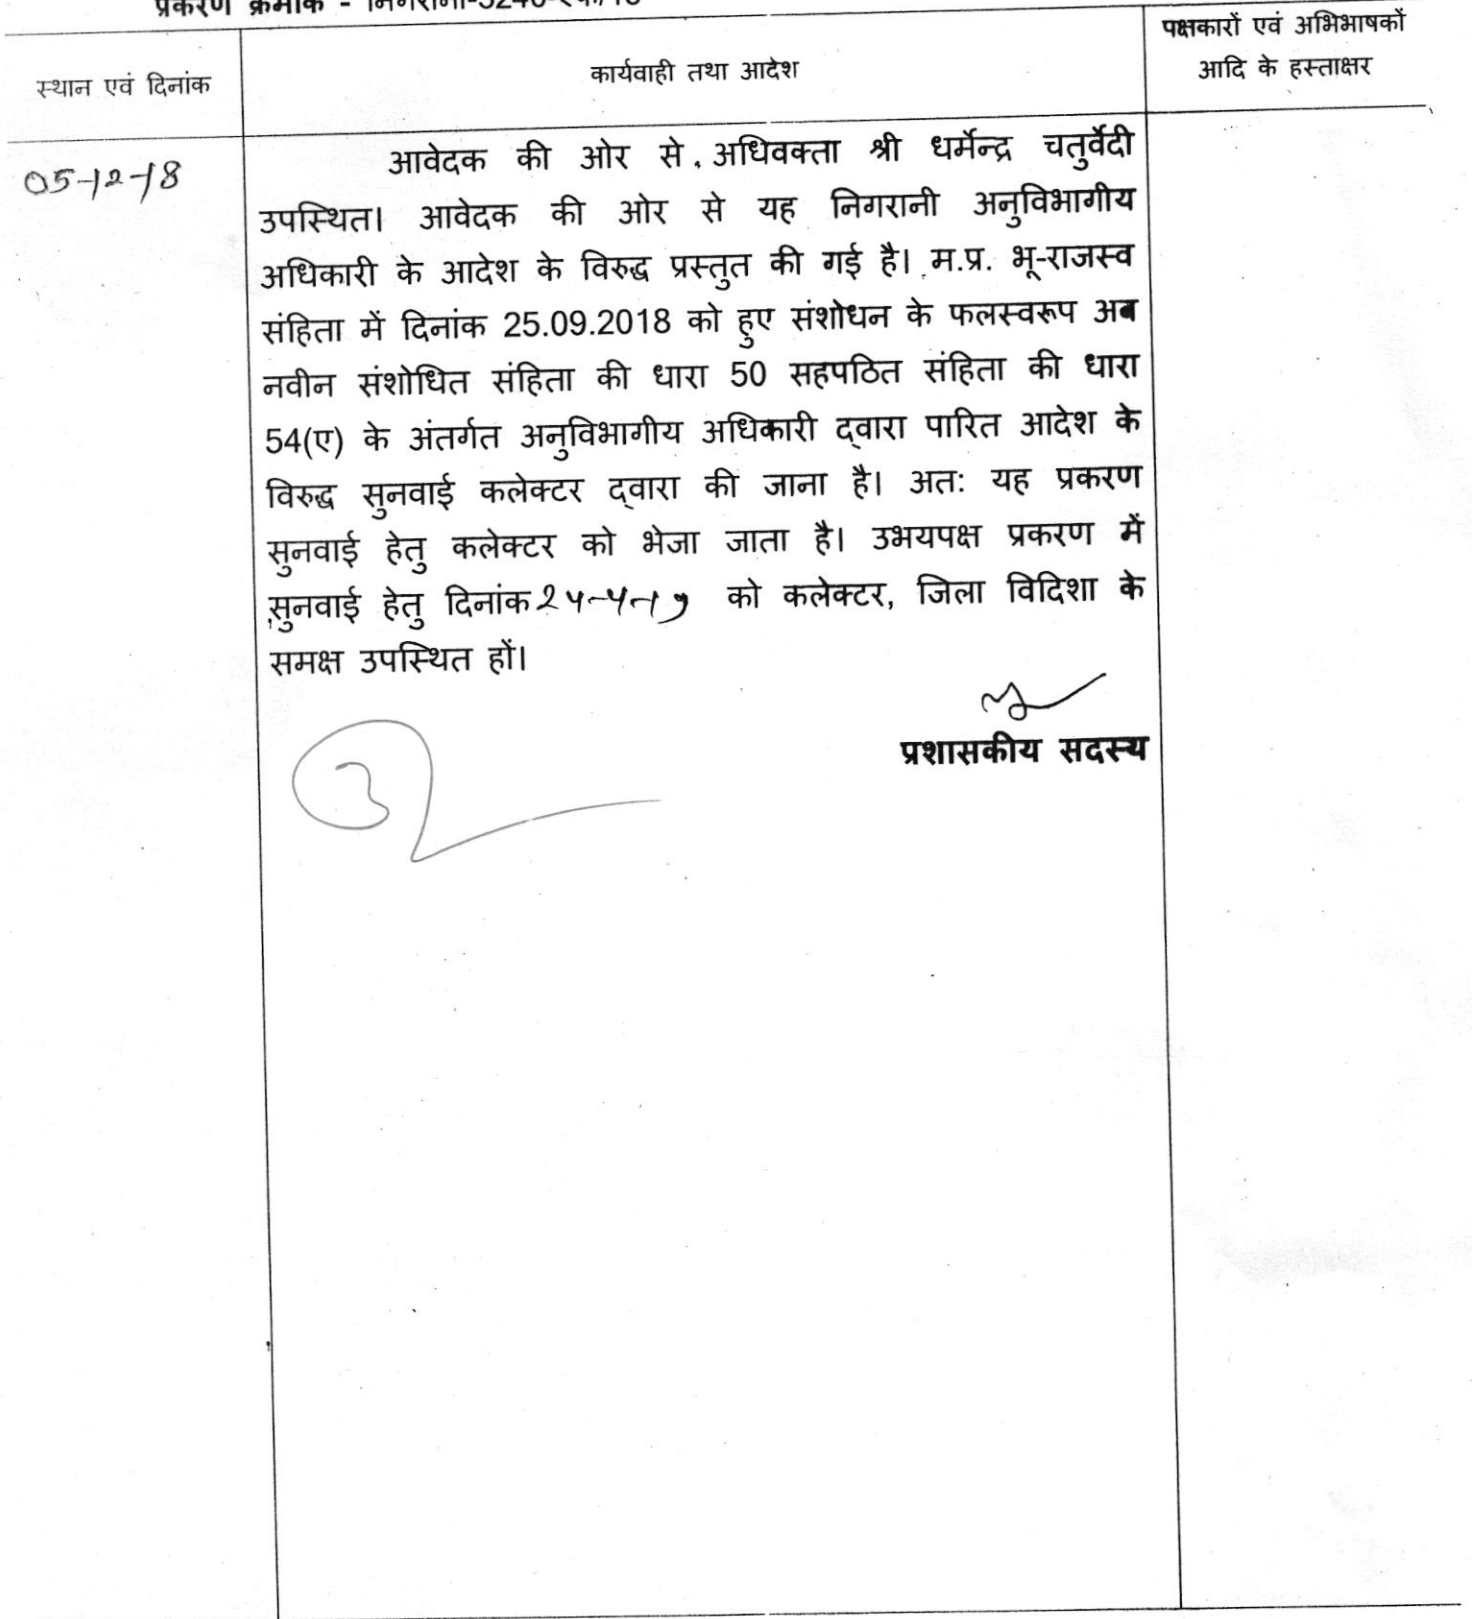 प्रकरण क्रमांक - निगरानी-
स्थान एवं दिनांक
कार्यवाही तथा आदेश
पक्षकारों एवं अभिभाषकों
आदि के हस्ताक्षर
05-12-18
आवेदक की ओर से, अधिवक्ता श्री धर्मेन्द्र चतुर्वेदी
उपस्थित। आवेदक की ओर से यह निगरानी अनुविभागीय
अधिकारी के आदेश के विरुद्ध प्रस्तुत की गई है। म.प्र. भू-राजस्व
संहिता में दिनांक 25.09.2018 को हुए संशोधन के फलस्वरूप अब
नवीन संशोधित संहिता की धारा 50 सहपठित संहिता की धारा
54(ए) के अंतर्गत अनुविभागीय अधिकारी द्वारा पारित आदेश के
विरुद्ध सुनवाई कलेक्टर द्वारा की जाना है। अतः यह प्रकरण
सुनवाई हेतु कलेक्टर को भेजा जाता है। उभयपक्ष प्रकरण में
सुनवाई हेतु दिनांक को कलेक्टर, जिला विदिशा के
समक्ष उपस्थित हों।
प्रशासकीय सदस्य